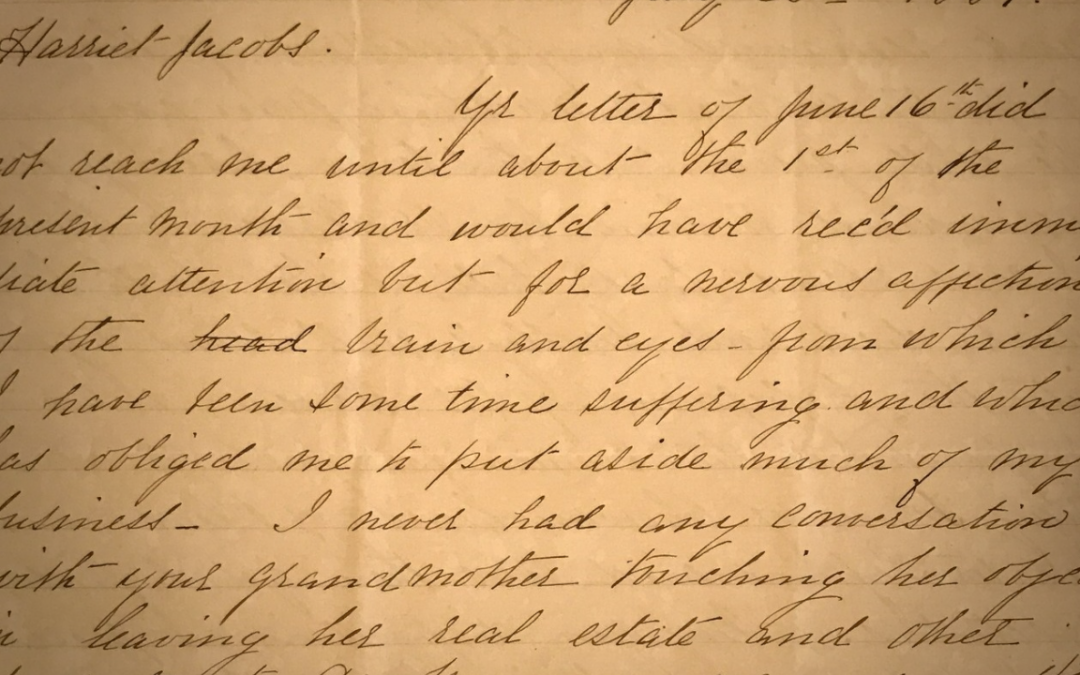 Harriet Jacobs.
Yr letter of June 16th did
ot reach me until about the 1st of the
present month and would have rec'd imm
iate attention but for a nervous affection
the head brain and eyes - from which
I have been some time suffering and whic
as obliged me to put aside much of my
business - I never had any conversation
with your grandmother touching her obje
leaving her real estate and other